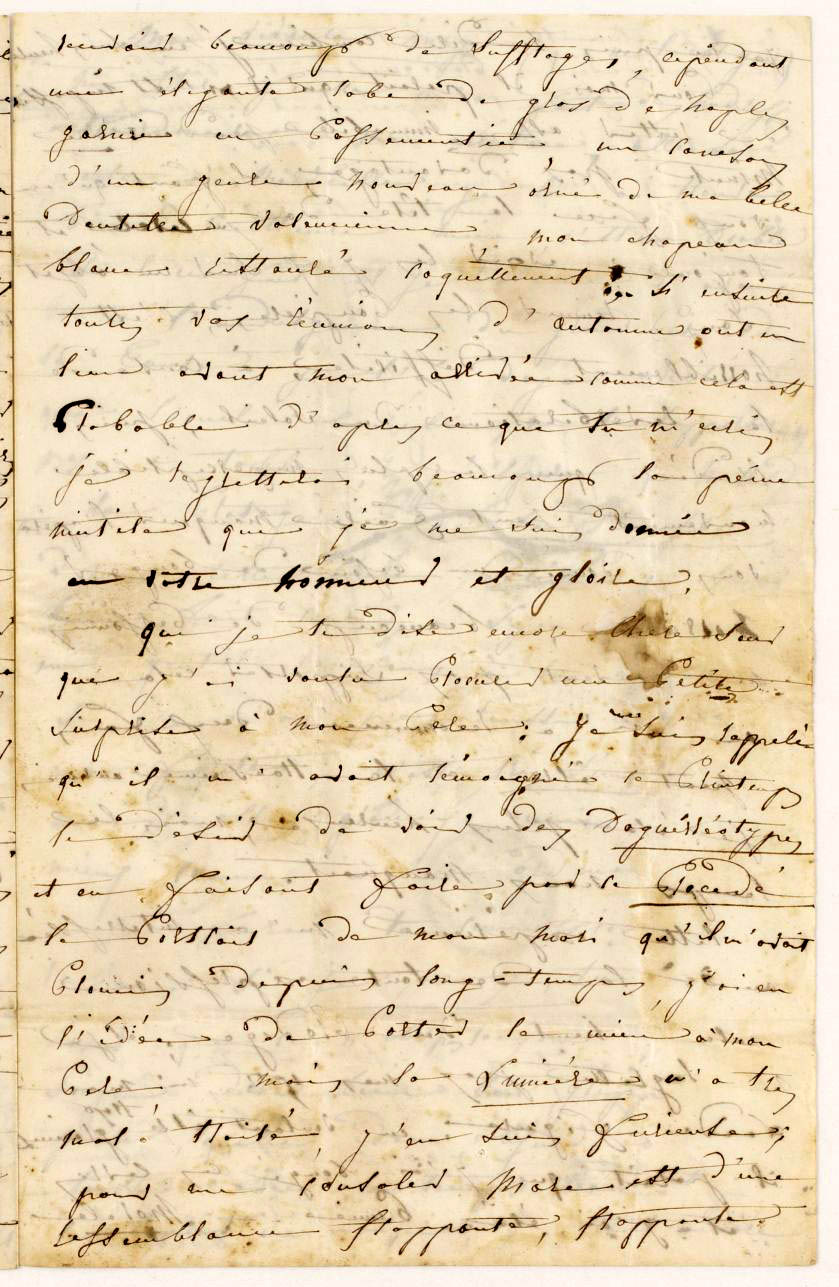 beaucoup de suffrages, cependant
une élégante robe de gros de Naples
garnie en Passementerie un
d'un genre nouveau orné de ma belle
Dentelle valencienne, mon chapeau
blanc restauré coquettement si ensuite
toutes vos réunions d'automne ont eu
lieu avant mon arrivée comme cela est
Probable d'après ce que tu m'écris
je regretterai beaucoup la peine
inutile que je me suis donnée
en votre honneur et gloire,
que je te dise encore chère sœur
que j'ai voulu Procurer une Petite
surprise à mon Pere; Je me suis rappelée
qu'il m'avait témoigné ce Printemps
le désir de voir des Daguérréotypes
et en faisant faire par ce Procedé
le Portrait de mon mari qu'il m'avait
Promis depuis long-temps, j'ai eu
l'idée de Porter le mien à mon
Pere mais la Lumière m'a très
mal traité j'en suis furieuse;
pour me consoler Marc est d'une
ressemblance frappante, frappante.